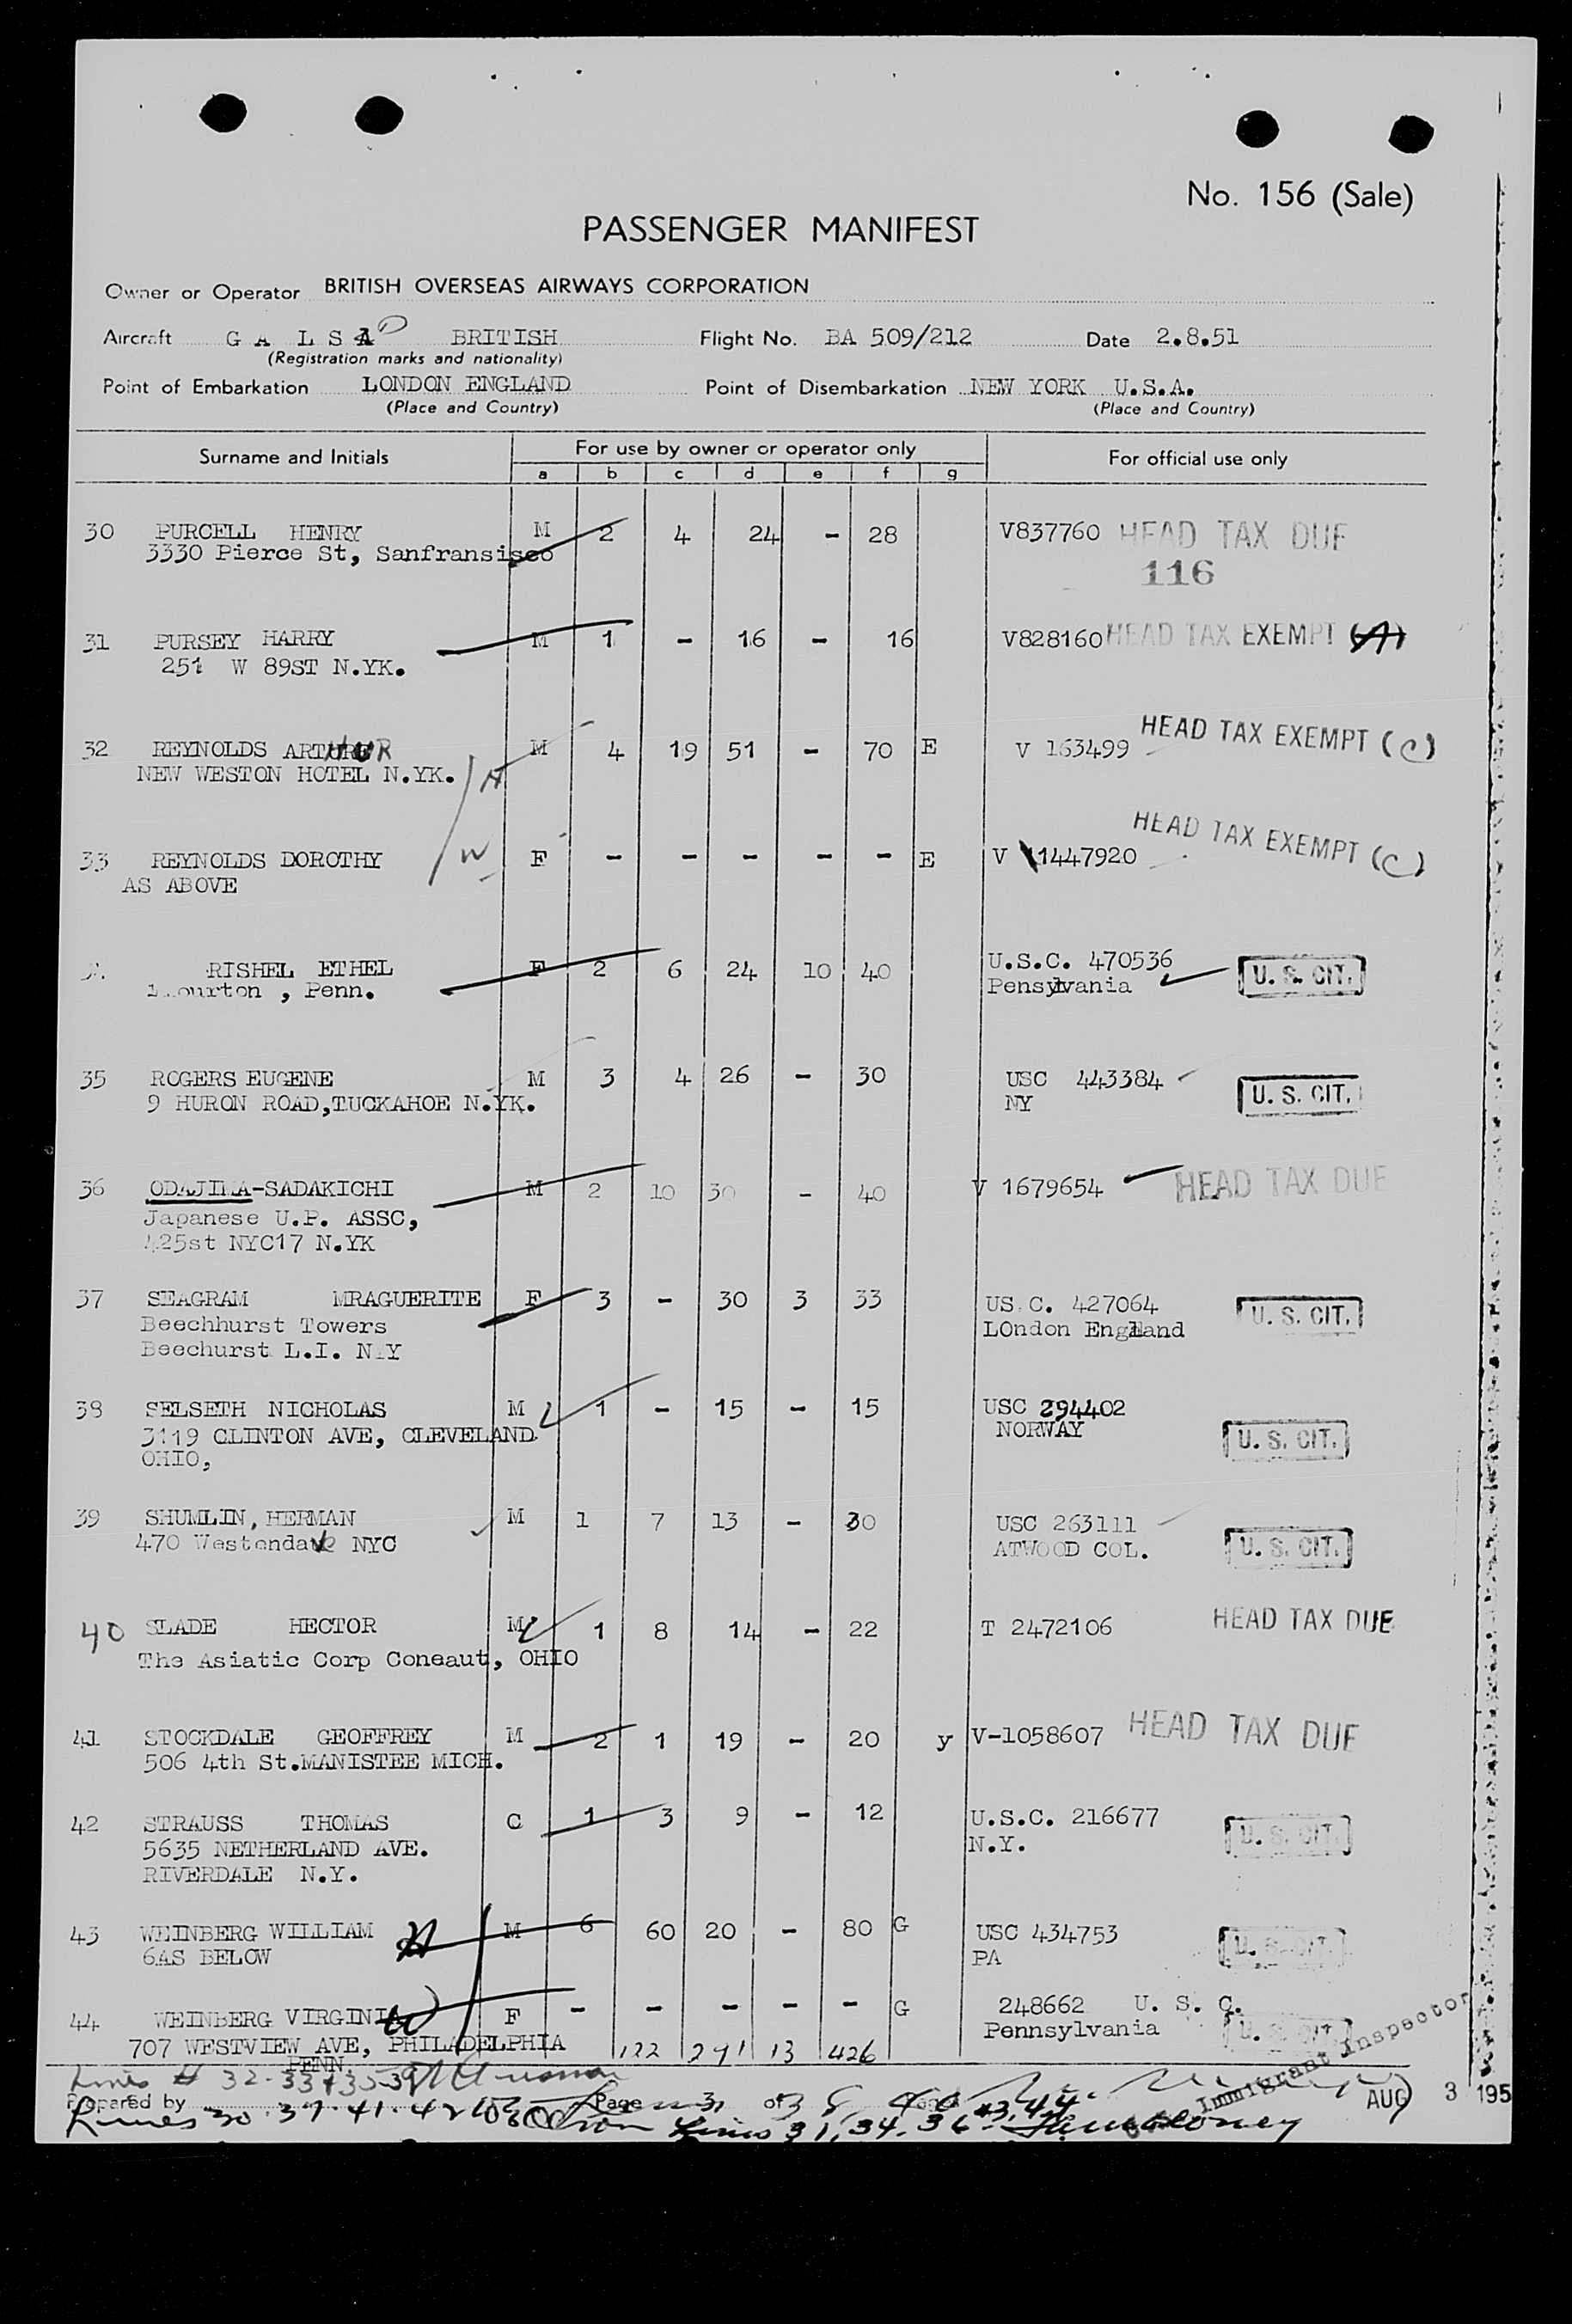 No. 156 (Sale)
PASSENGER MANIFEST
Owner or Operator BRITISH OVERSEAS AIRWAYS CORPORATION
Aircraft G A L S D BRITISH Flight No. BA 509/212 Date 2.8.51
(Registration marks and nationality)
Point of Embarkation LONDON ENGLAND Point of Disembarkation NEW YORK U.S.A.
(Place and Country) (Place and Country)
Surname and Initials For use by owner or operator only For official use only
a b c d e f g
30 PURCELL HENRY M 2 4 24 - 28 V837760 HEAD TAX DUE
3330 Pierce St, Sanfransisco 116
31 PURSEY HARRY M 1 - 16 - 16 V828160 HEAD TAX EXEMPT (A)
251 W 89ST N.YK.
32 REYNOLDS ARTHUR M 4 19 51 - 70 E V 163499 HEAD TAX EXEMPT (C)
NEW WESTON HOTEL N.YK. H
33 REYNOLDS DOROTHY W F - - - - - E V 1447920 HEAD TAX EXEMPT (C)
AS ABOVE
RISHEL ETHEL F 2 6 24 10 40 U.S.C. 470536 U. S. CIT.
, Penn. Pensylvania
35 ROGERS EUGENE M 3 4 26 - 30 USC 443384 U. S. CIT.
9 HURON ROAD,TUCKAHOE N.YK. NY
36 ODAJIMA-SADAKICHI M 2 10 30 - 40 V 1679654 HEAD TAX DUE
Japanese U.P. ASSC,
425st NYC17 N.YK
37 SEAGRAM MRAGUERITE F 3 - 30 3 33 US.C. 427064 U. S. CIT.
Beechhurst Towers LOndon England
Beechurst L.I. N.Y
38 SELSETH NICHOLAS M 1 - 15 - 15 USC 294402
3119 CLINTON AVE, CLEVELAND NORWAY U. S. CIT.
OHIO,
39 SHUMLIN, HERMAN M 1 7 13 - 30 USC 263111
470 Westendave NYC ATWOOD COL. U. S. CIT.
40 SLADE HECTOR M 1 8 14 - 22 T 2472106 HEAD TAX DUE
The Asiatic Corp Coneaut, OHIO
41 STOCKDALE GEOFFREY M 2 1 19 - 20 y V-1058607 HEAD TAX DUE
506 4th St.MANISTEE MICH.
42 STRAUSS THOMAS C 1 3 9 - 12 U.S.C. 216677
5635 NETHERLAND AVE. N.Y. U. S. CIT.
RIVERDALE N.Y.
43 WEINBERG WILLIAM H M 6 60 20 - 80 G USC 434753
6AS BELOW PA U. S. CIT.
44 WEINBERG VIRGINI W F - - - - - G 248662 U. S. C.
707 WESTVIEW AVE, PHILADELPHIA Pennsylvania U. S. CIT.
PENN. 122 291 13 426
Lines # 32-33+35-39
Prepared by Page 3 of 3 Immigrant Inspector AUG 3 195
Lines 30.37.41.42 Lines 31,34.36.43,44